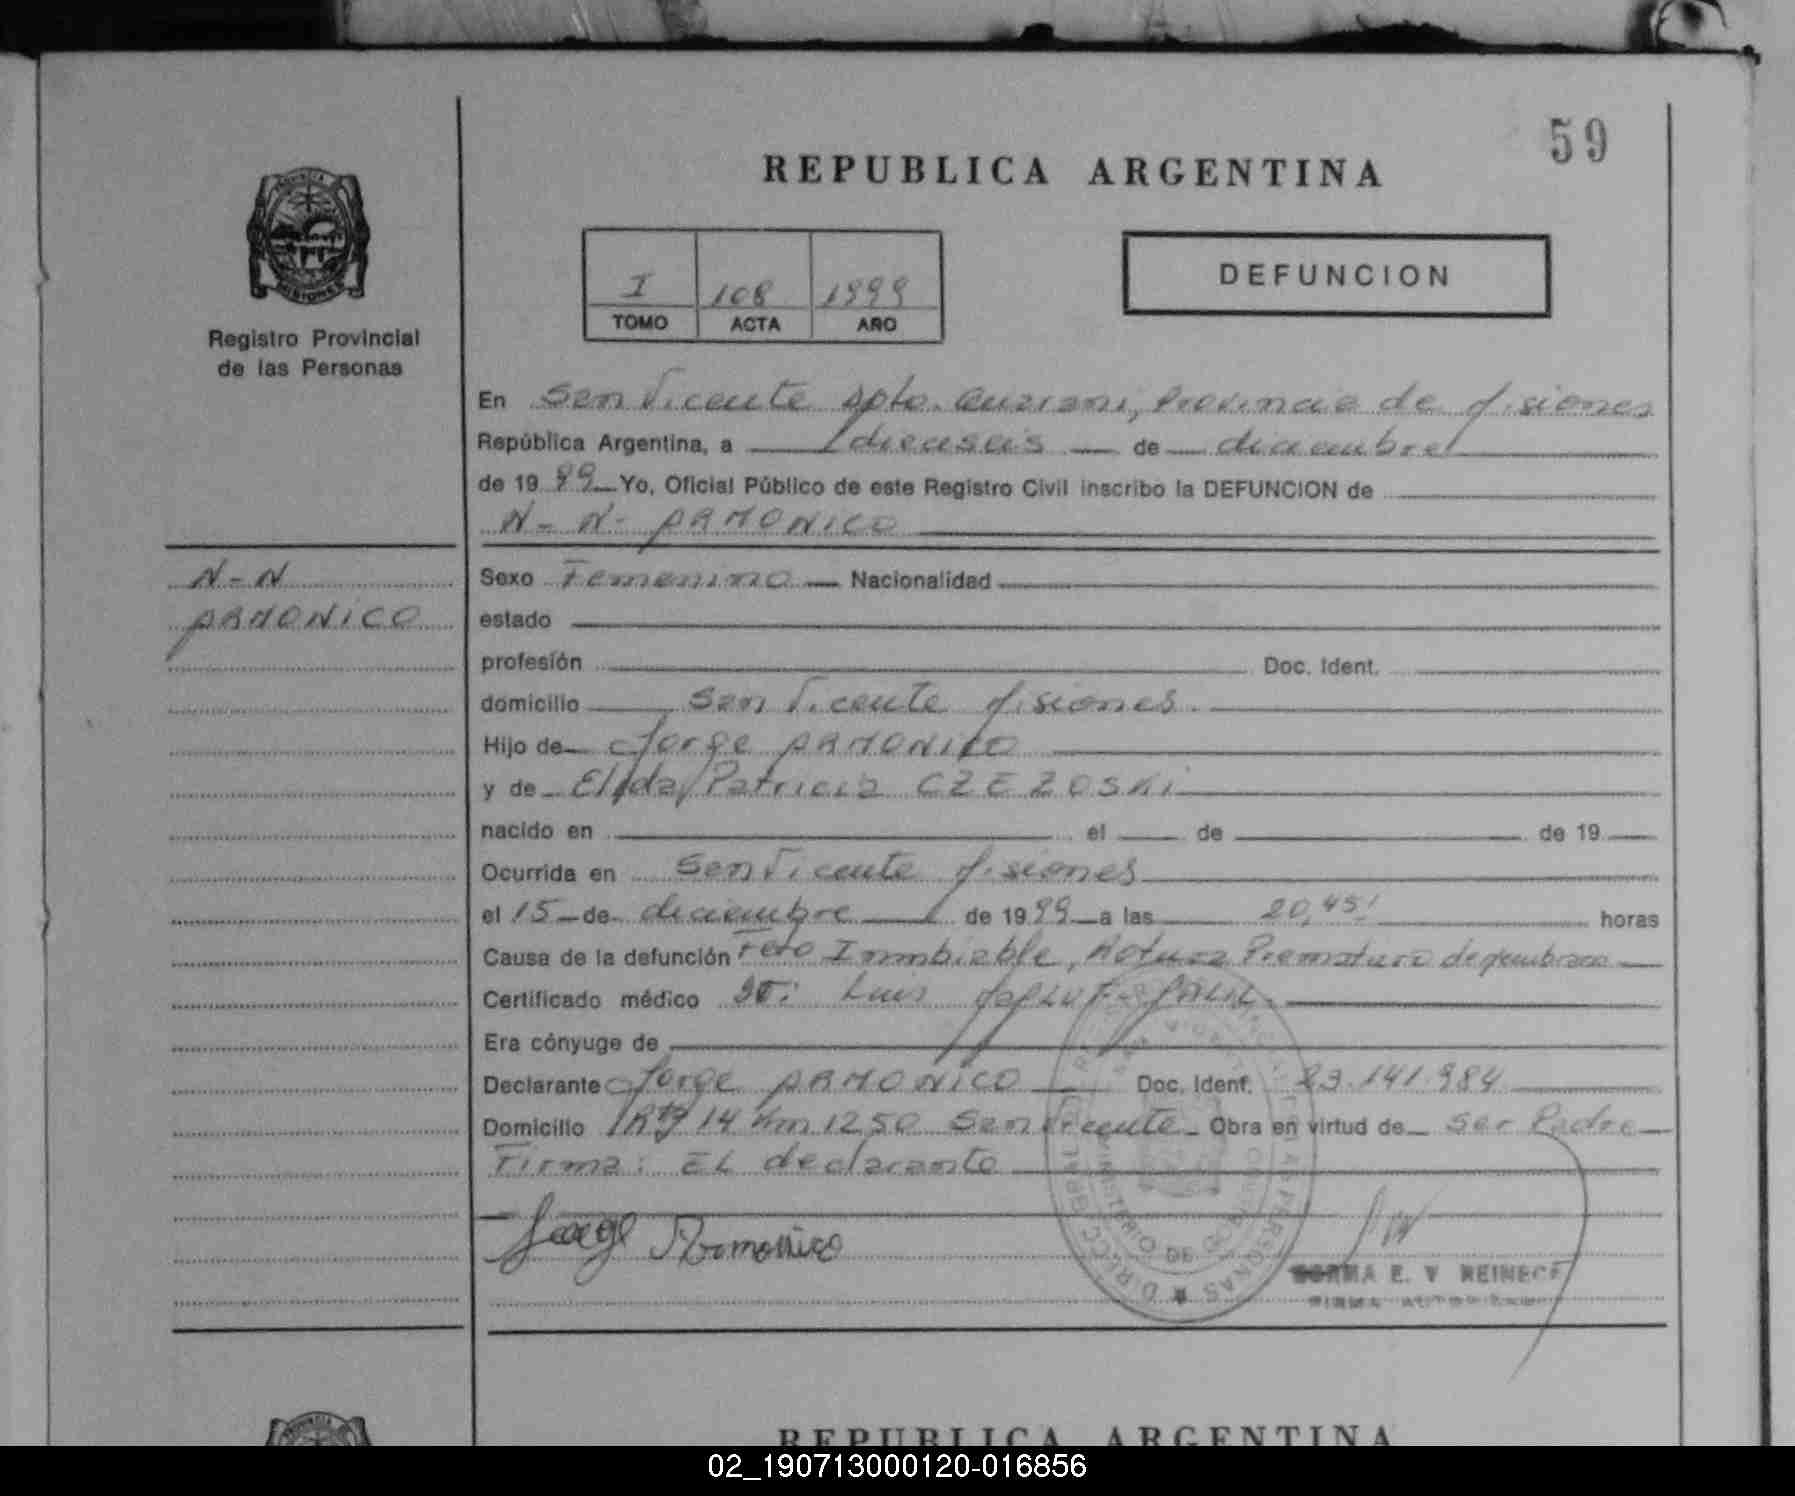 59
REPUBLICA ARGENTINA
I 108 1999
TOMO ACTA AÑO
DEFUNCION
PROVINCIA
MISIONES
Registro Provincial
de las Personas
En San Vicente Dpto. Guarani, Provincia de Misiones
República Argentina, a dieciseis de diciembre
de 19 99 Yo, Oficial Público de este Registro Civil inscribo la DEFUNCION de
N-N- ARMONICO
N-N
ARMONICO
Sexo Femenino Nacionalidad
estado
profesión Doc. Ident.
domicilio San Vicente Misiones.
Hijo de Jorge ARMONICO
y de Elida Patricia CZEZOSKi
nacido en el de de 19
Ocurrida en San Vicente Misiones
el 15 de diciembre de 1999 a las 20,45' horas
Causa de la defunción Feto Inmbiable, Rotura Prematura de
Certificado médico Luis
Era cónyuge de
Declarante Jorge ARMONICO Doc. Ident. 23.141.984
Domicilio 14 Km 1250 San Vicente Obra en virtud de Ser Padre
Firma: EL declarante
Jorge Armonico
NORMA E. V REINECK
FIRMA
REPUBLICA ARGENTINA
02_190713000120-016856